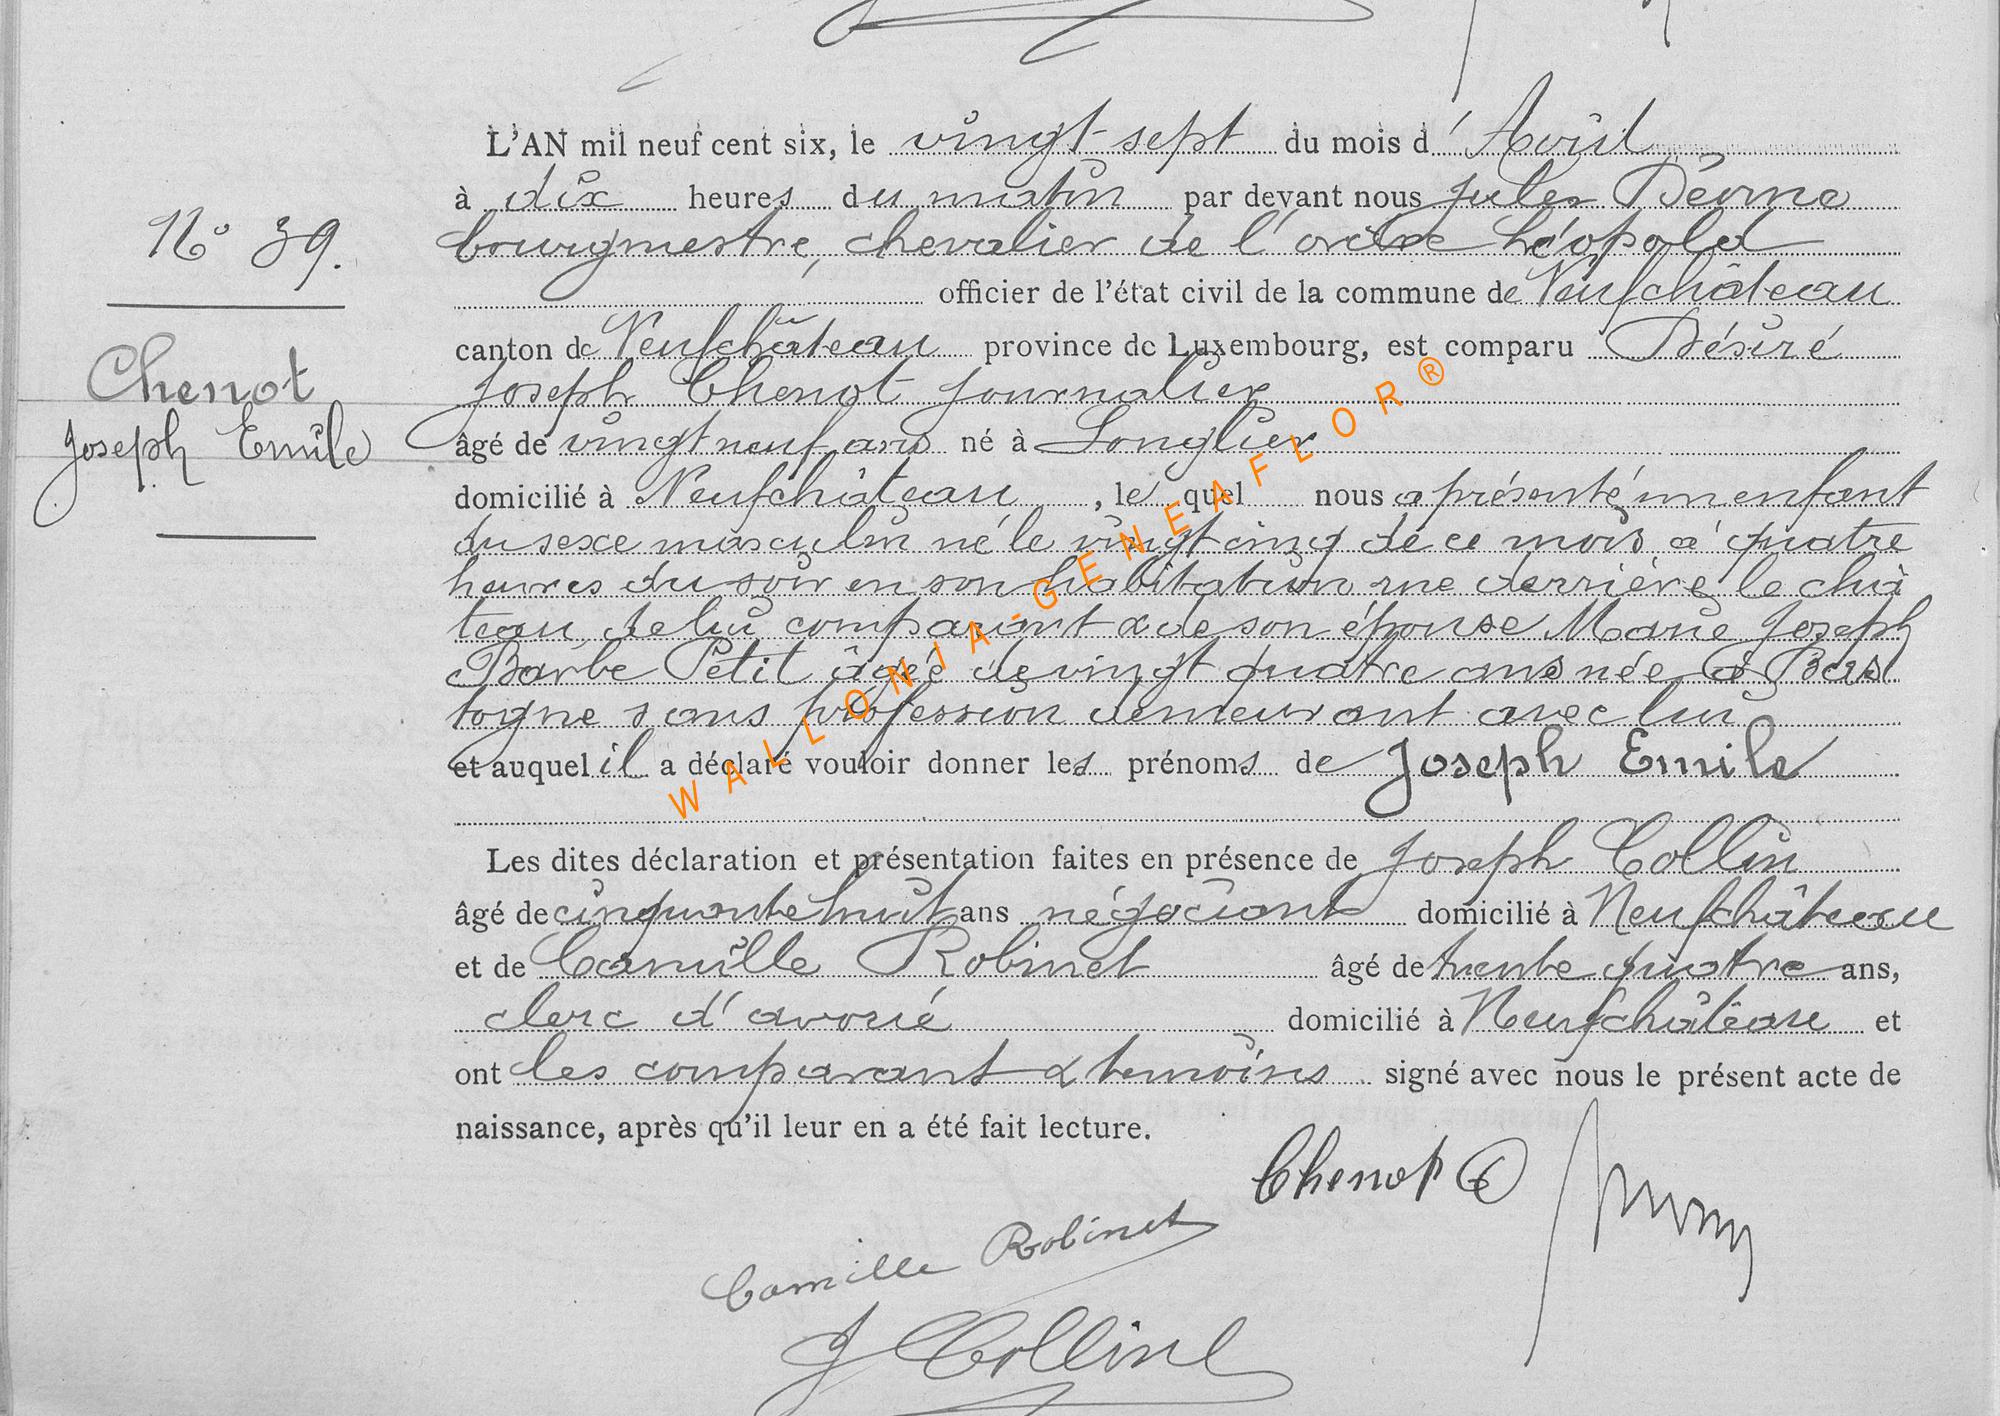 L'AN mil neuf cent six, le vingt-sept du mois d'Avril
à dix heures du matin par devant nous Jules
bourgmestre, chevalier de l'ordre Léopold
officier de l'état civil de la commune de Neufchâteau
N° 39.
canton de Neufchâteau province de Luxembourg, est comparu Désiré
Chenot
Joseph Chenot journalier
Joseph Emile
âgé de vingt neuf ans né à Longlier
domicilié à Neufchâteau, lequel nous a présenté un enfant
du sexe masculin né le vingt cinq de ce mois à quatre
heures du soir en son habitation rue derrière le châ
teau, de lui comparant & de son épouse Marie Joseph
Barbe Petit âgée de vingt quatre ans née à Bas
togne sans profession demeurant avec lui
et auquel il a déclaré vouloir donner les prénoms de Joseph Emile
Les dites déclaration et présentation faites en présence de Joseph Collin
âgé de cinquante huit ans négociant domicilié à Neufchâteau
et de Camille Robinet âgé de trente quatre ans,
clerc d'avoué domicilié à Neufchâteau et
ont les comparant & temoins signé avec nous le présent acte de
naissance, après qu'il leur en a été fait lecture.
Chenot D
Camille Robinet
J Collin
WALLONIA-GENEAFLOR®